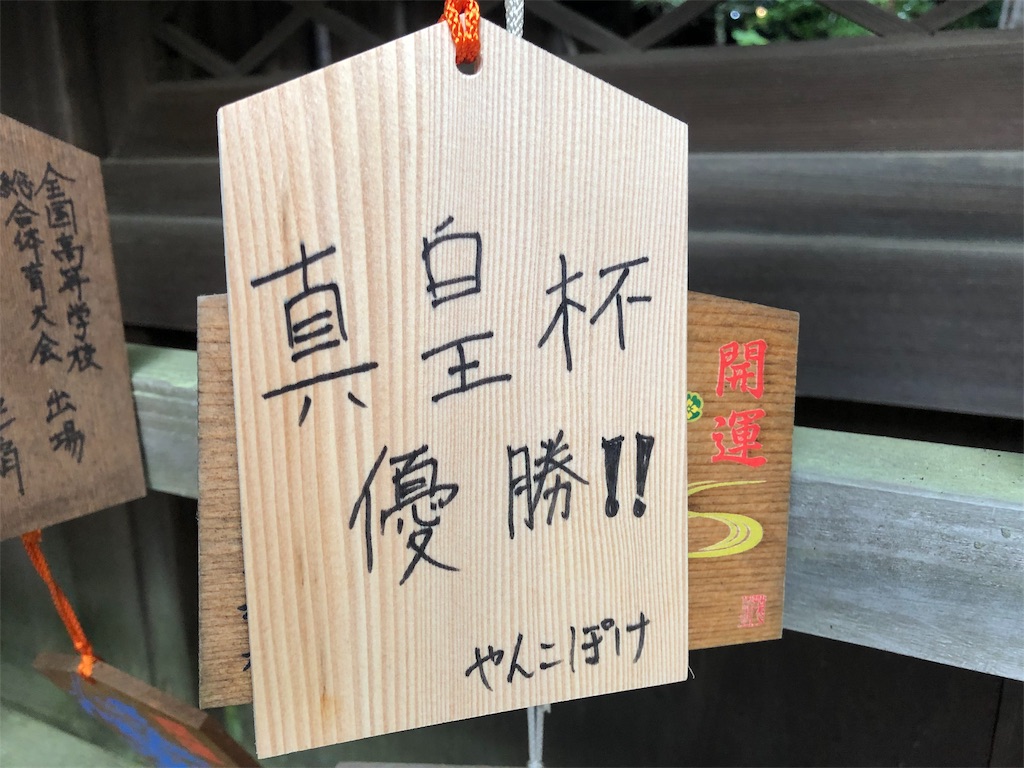 真皇杯
優勝!!
やんこぽけ
全国高等学校
総合体育大会
出場
開運